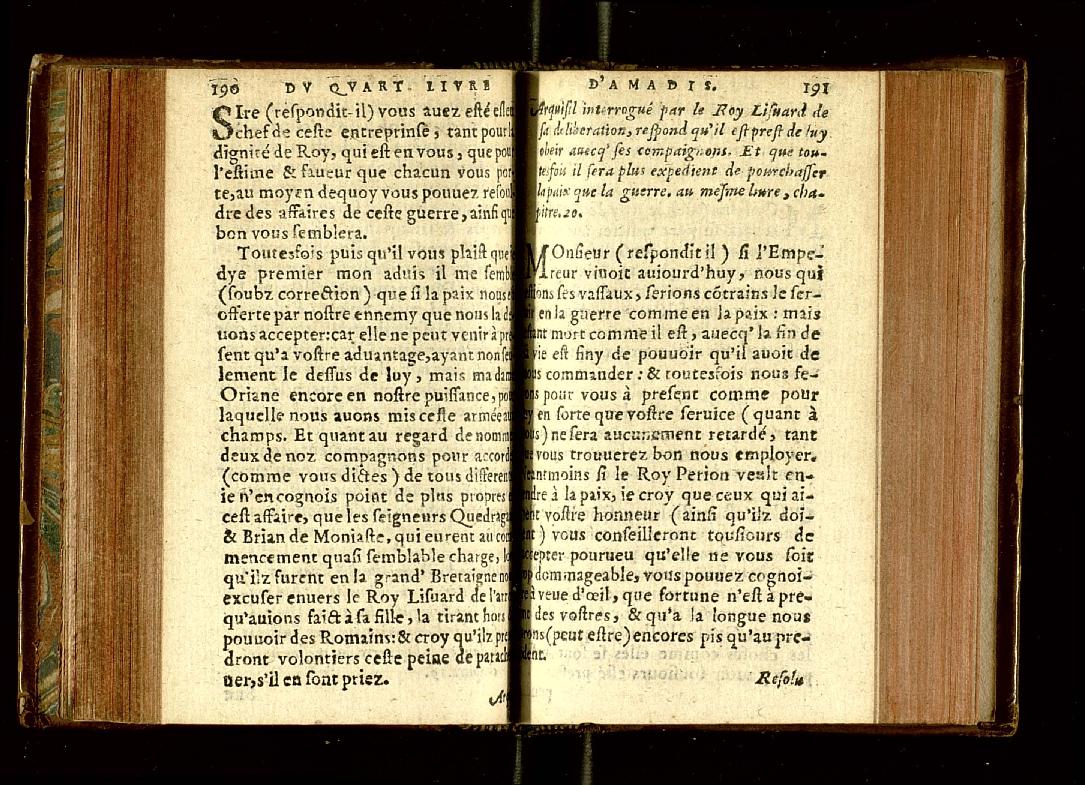 190 DV QVART LIVRE
SIre (reſpondit-il) vous auez eſté
chef de ceſte entreprinſe, tant pour
dignité de Roy, qui eſt en vous, que
l'eſtime & faueur que chacun vous
te, au moyen dequoy vous pouuez
dre des affaires de ceſte guerre, ainſi
bon vous ſemblera.
Toutesfois puis qu'il vous plaiſt que
dye premier mon aduis il me
(ſoubz correction) que ſi la paix
offerte par noſtre ennemy que nous la
uons accepter: car elle ne peut venir à
ſent qu'a voſtre aduantage, ayant non
lement le deſſus de luy, mais
Oriane encore en noſtre puiſſance,
laquelle nous auons mis ceſte armée
champs. Et quant au regard de
deux de noz compagnons pour
(comme vous dictes) de tous
ie n'en cognois point de plus propres
ceſt affaire, que les ſeigneurs
& Brian de Moniaſte, qui eurent au
mencement quaſi ſemblable charge,
qu'ilz furent en la grand' Bretaigne
excuſer enuers le Roy Liſuard de
qu'auions faict à ſa fille, la tirant hors
pouuoir des Romains: & croy qu'ilz
dront volontiers ceſte peine de
uer, s'il en ſont priez.
D'AMADIS. 191
Arquiſil interrogué par le Roy Liſuard de
ſa deliberation, reſpond qu'il eſt preſt de luy
obeir auecq' ſes compaignons. Et que tou-
tesfois il ſera plus expedient de pourchaſſer
la paix que la guerre. au meſme liure, cha-
pitre. 20.
MOnſieur (reſpondit il) ſi l'Empe-
reur viuoit auiourd'huy, nous qui
ſes vaſſaux, ſerions cōtrains le ſer-
en la guerre comme en la paix: mais
mort comme il eſt, auecq' la fin de
vie eſt finy de pouuoir qu'il auoit de
commander: & toutesfois nous fe-
pour vous à preſent comme pour
en ſorte que voſtre ſeruice (quant à
) ne ſera aucunement retardé, tant
vous trouuerez bon nous employer.
ſi le Roy Perion veult en-
à la paix, ie croy que ceux qui ai-
voſtre honneur (ainſi qu'ilz doi-
) vous conſeilleront touſiours de
pourueu qu'elle ne vous ſoit
dommageable, vous pouuez cognoi-
à veue d'œil, que fortune n'eſt à pre-
des voſtres, & qu'a la longue nous
(peut eſtre) encores pis qu'au pre-
Reſolu